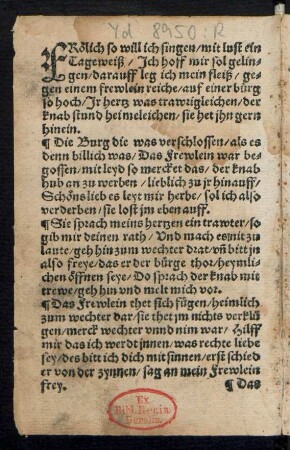 Yd 8950:R
FRölich so will ich singen/mit lust ein
Tageweiß/Ich hoff mir sol gelin-
gen/darauff leg ich mein fleiß/ge-
gen einem frewlein reiche/auf einer bürg
so hoch/Jr hertz was trawigleichen/der
knab stund heimeleichen/sie het jhn gern
hinein.
¶ Die Burg die was verschlossen/als es
denn billich was/Das Frewlein war be-
gossen/mit leyd so mercket das/der knab
hub an zu werben/lieblich zu jr hinauff/
Schöns lieb es leyt mir herbe/sol ich also
verderben/sie lost jm eben auff.
¶ Sie sprach meins hertzen ein trawter/so
gib mir deinen rath/Und mach es nit zu
laute/geh hin zum wechter drat/vñ bitt jn
also freye/das er der bürge thor/heymli-
chen öffnen seye/Do sprach der knab mit
trewe/geh hin und melt mich vor.
¶ Das Frewlein thet sich fügen/heimlich
zum wechter dar/sie thet jm nichts verklü
gen/merck wechter vnnd nim war/Hilff
mir das ich werdt jnnen/was rechte liebe
sey/des bitt ich dich mit sinnen/erst schied
er von der zynnen/sag an mein Frewlein
frey. ¶ Das
Ex
Bibl. Regia
Berolin.